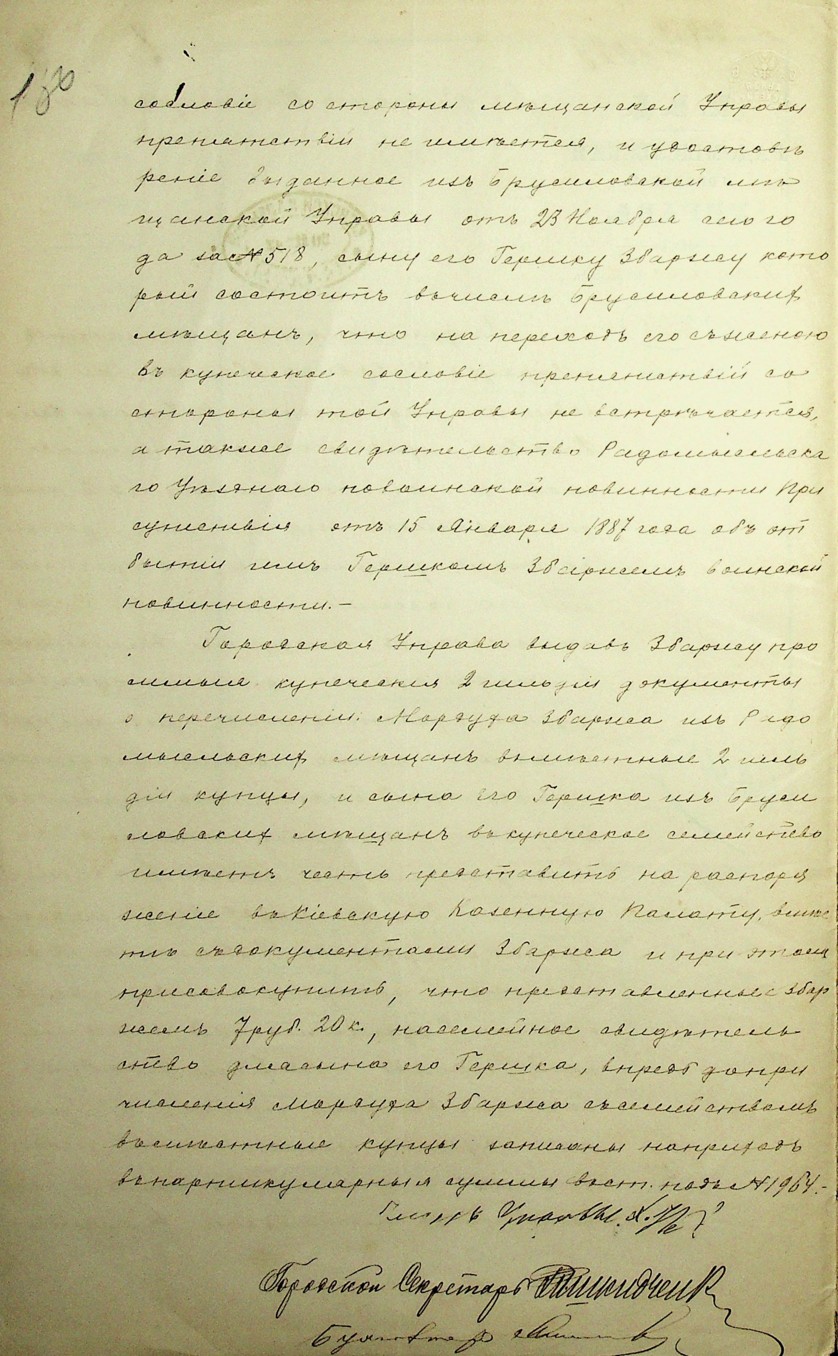 180
сословіе со стороны мѣщанской Управы
препятствій не имѣется, и удостовѣ
реніе выданное изъ Брусиловской мѣ
щанской Управы отъ 23 Ноября сего го
да за № 518, сыну его Гершку Збаржу кото
рый состоитъ вчислѣ Брусиловскихъ
мѣщанъ, что на переходъ его съженою
въ купеческое сословіе препятствій со
стороны той Управы не встрѣчается,
а также свидѣтельство Радомысльска
го Уѣзднаго повоинской повинности При
сутствія отъ 15 Января 1887 года объ от
бытіи имъ Гершкомъ Збаржемъ воинской
повинности.—
Городская Управа выдавъ Збаржу про
мыслов купеческія 2 гильдіи документы
о перечисленіи Мордуха Збаржа изъ Радо
мысльскихъ мѣщанъ вмѣстные 2 гиль
діи купцы, и сына его Гершка изъ Бруси
ловскихъ мѣщанъ вкупеческое семейство
имѣетъ честь представить на распоря
женіе въКіевскую Казенную Палату, вмѣс
тѣ съдокументами Збаржа и при этомъ
присовокупить, что представленные Збар
жемъ 7 руб. 20 к., насемейное свидѣтель
ство длясына его Гершка, впредь допри
численія Мордуха Збаржа съсемействомъ
въмѣстные купцы записаны наприходъ
въпартикулярныя суммы въст. подъ № 1964.—
Членъ Управы
Городской Секретарь
Бухгалтеръ